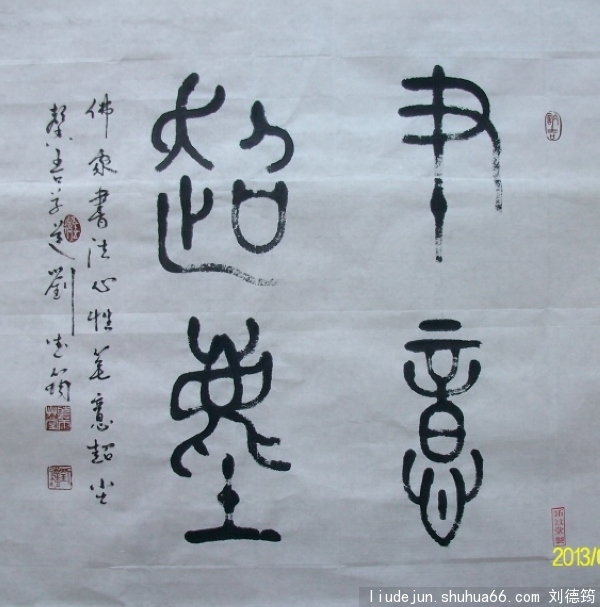 聿意
超塵
佛家書法心性笔意超尘
劉德筠
2013/
liudejun.shuhua66.com 刘德筠